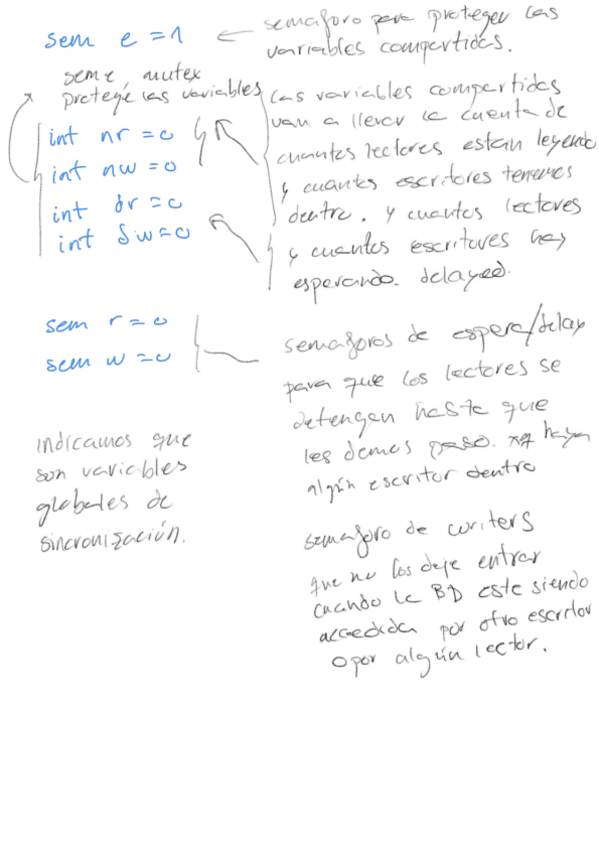 sem e = 1
semaforo para proteger las
variables compartidas.
sem e, mutex
protege las variables
int nr = 0
int nw = 0
int dr = 0
int dw = 0
Las variables compartidas
van a llevar la cuenta de
cuantos lectores estan leyendo
y cuantos escritores tenemos
dentro. y cuantos lectores
y cuantos escritores hay
esperando. delayed.
sem r = 0
sem w = 0
semaforos de espera/delay
para que los lectores se
detengan hasta que
les demos paso. haya
algún escritor dentro
indicamos que
son variables
globales de
sincronización.
semaforo de writers
que no los deje entrar
cuando la BD este siendo
accedida por otro escritor
o por algún lector.